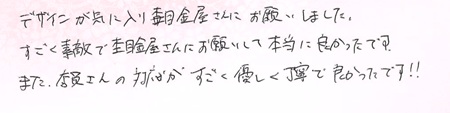 デザインが気に入り杢目金屋さんにお願いしました。
すごく素敵で杢目金屋さんにお願いして本当に良かったです。
また、店員さんの対応がすごく優しく丁寧で良かったです!!